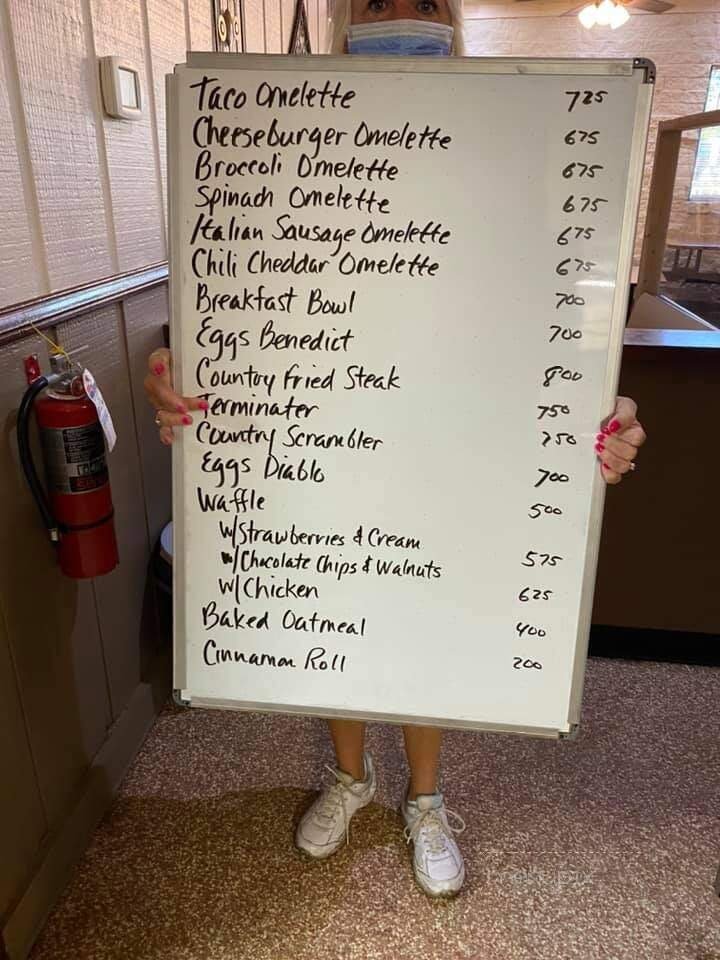 Taco Omelette 725
Cheeseburger Omelette 675
Broccoli Omelette 675
Spinach Omelette 675
Italian Sausage Omelette 675
Chili Cheddar Omelette 675
Breakfast Bowl 700
Eggs Benedict 700
Country Fried Steak 800
Terminater 750
Country Scrambler 750
Eggs Diablo 700
Waffle 500
w/Strawberries & Cream
w/Chocolate Chips & Walnuts 575
w/Chicken 625
Baked Oatmeal 400
Cinnamon Roll 200